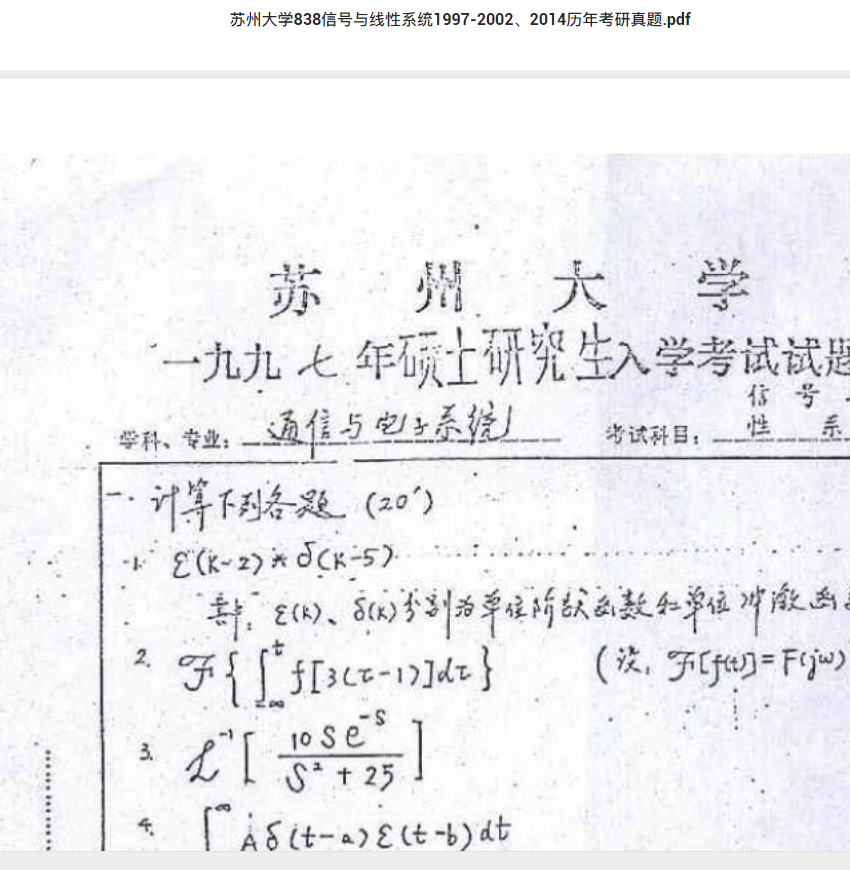 苏州大学838信号与线性系统1997-2002、2014历年考研真题.pdf
苏 州 大 学
一九九七年硕士研究生入学考试试题
信 号
学科、专业： 通信与电子系统 考试科目： 性 系
一. 计算下列各题 (20′)
1. ε(k-2)*δ(k-5)
其中, ε(k)、δ(k)分别为单位阶跃函数和单位冲激函
2. ℱ{∫_{-∞}^{t} f[3(τ-1)]dτ} (设, ℱ[f(t)]=F(jω)
3. ℒ⁻¹[10Se^{-S}/(S²+25)]
4. ∫^{∞} Aδ(t-a)ε(t-b)dt